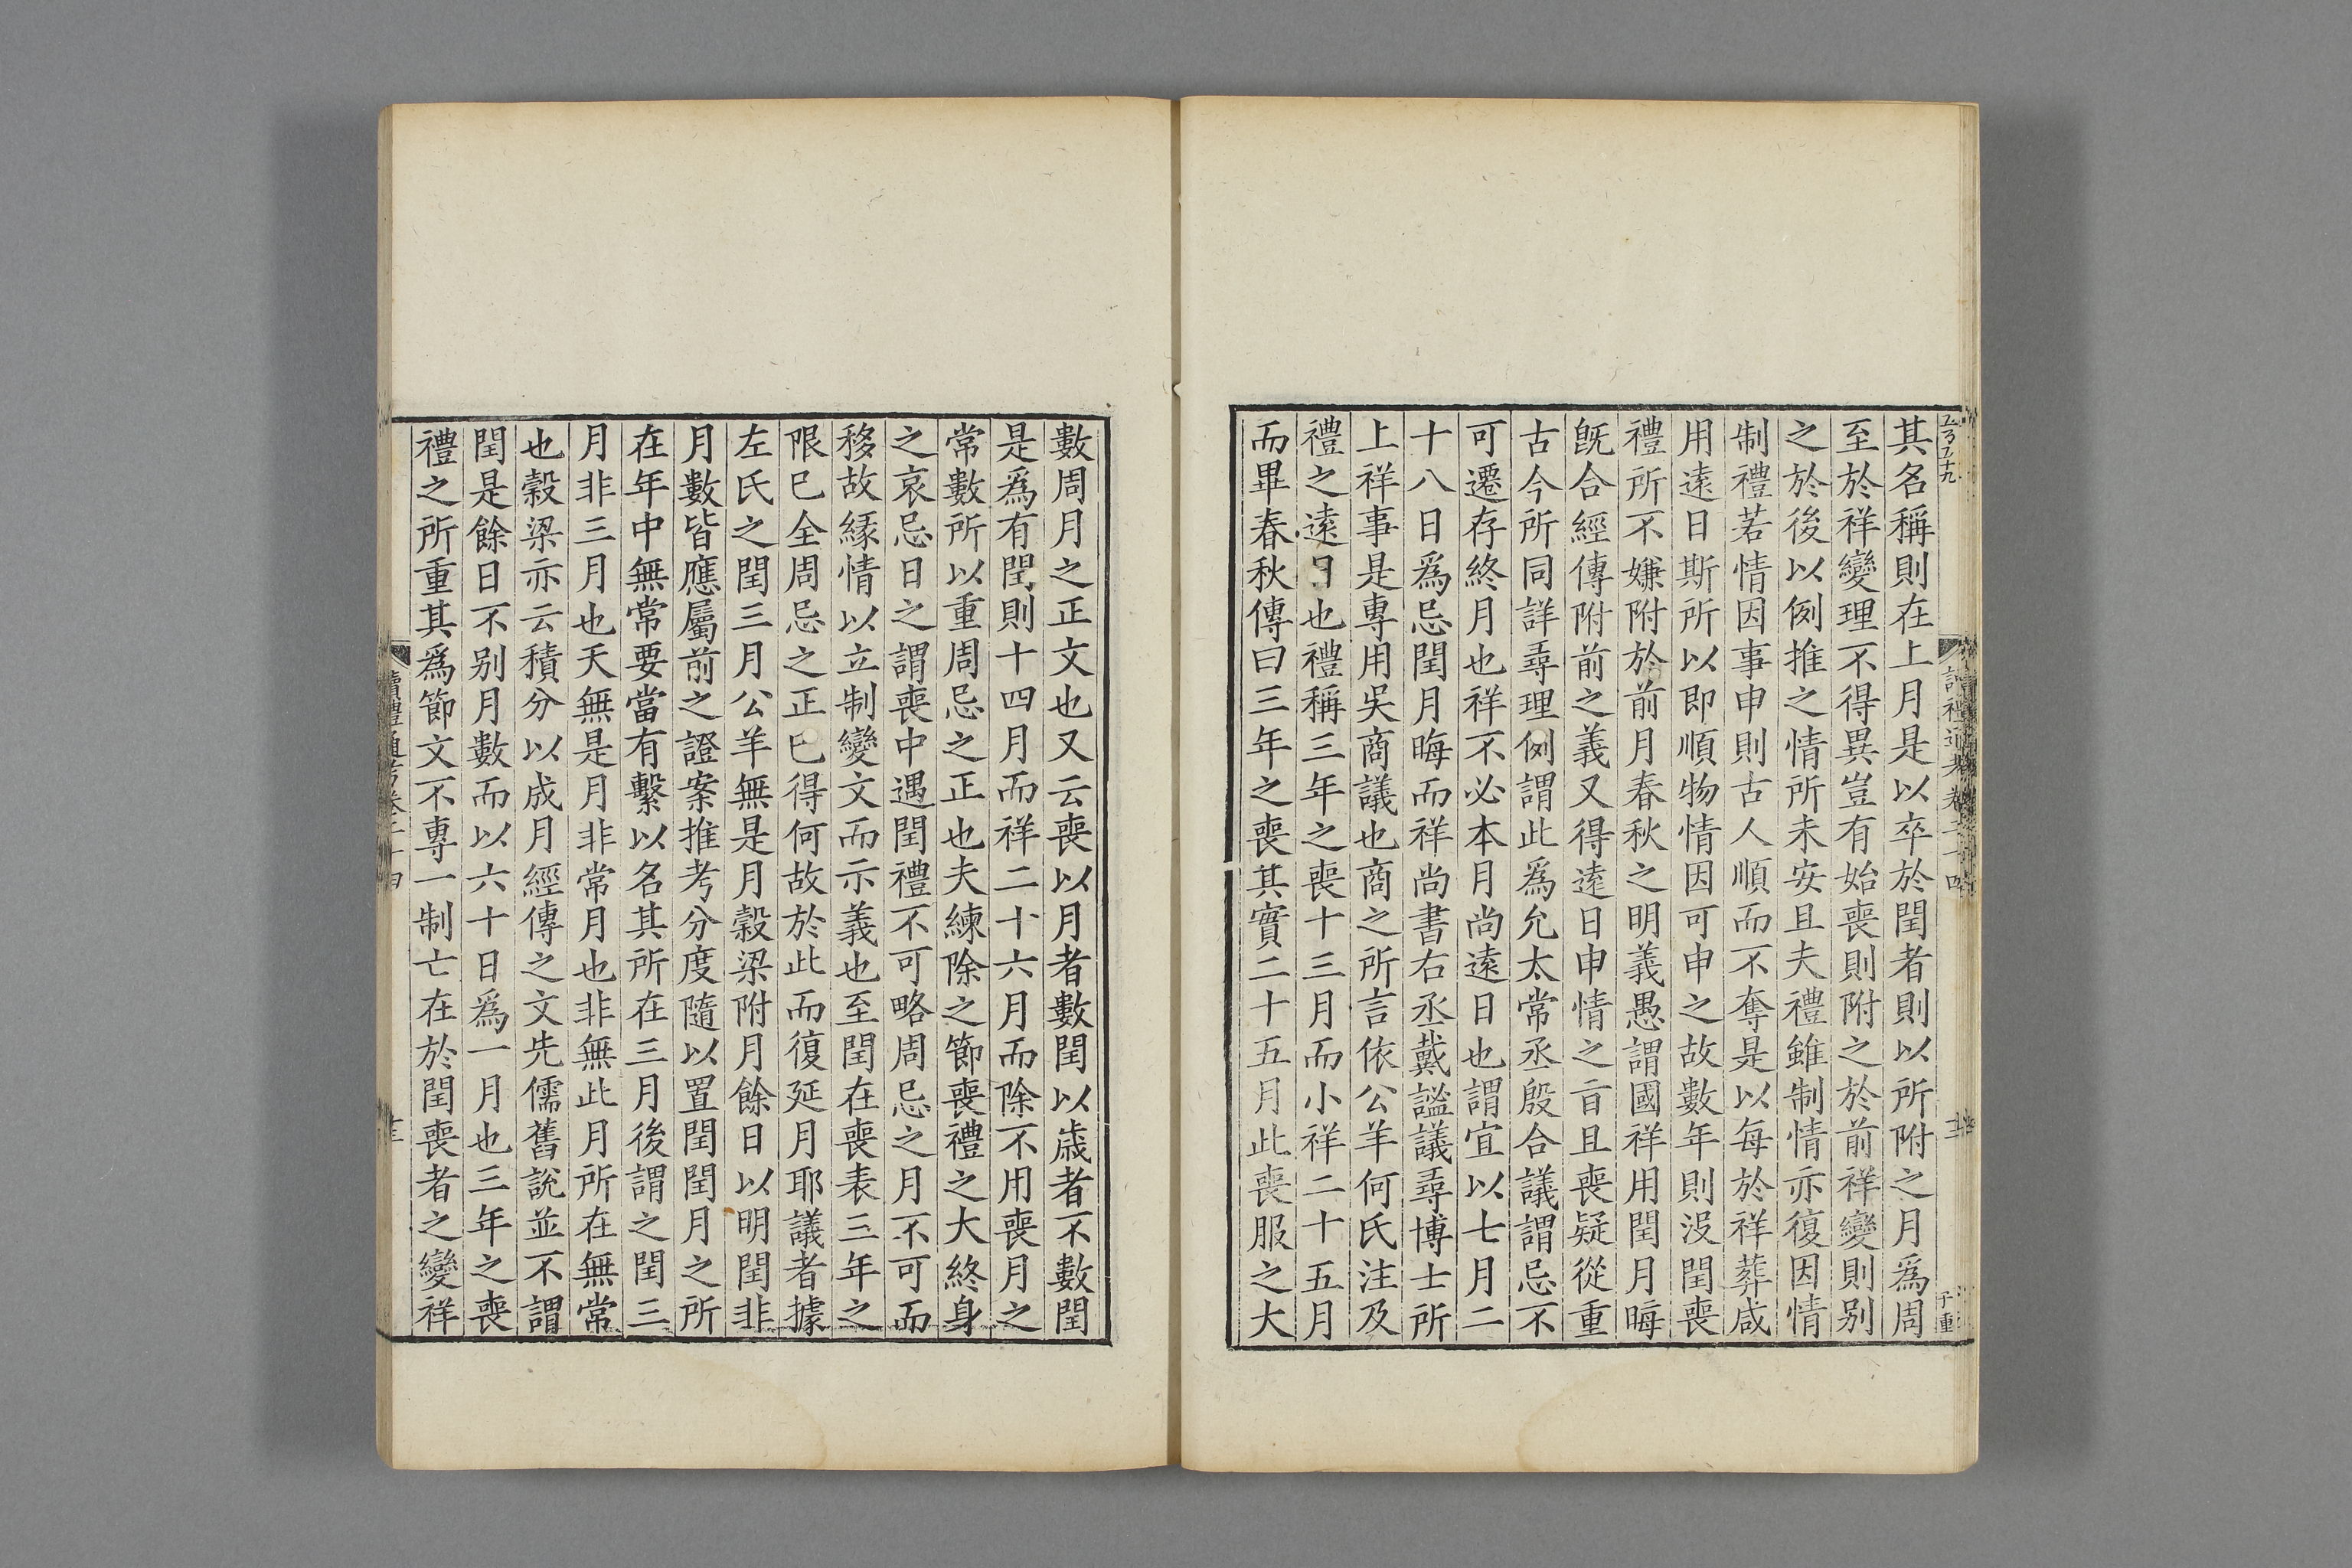 其名稱則在上月是以卒於閏者則以所附之月爲周
至於祥變理不得異豈有始喪則附之於前祥變則别
之於後以例推之情所未安且夫禮雖制情亦復因情
制禮若情因事申則古人順而不奪是以每於祥葬咸
用遠日斯所以即順物情因可申之故數年則沒閏喪
禮所不嫌附於前月春秋之明義愚謂國祥用閏月晦
旣合經傳附前之義又得遠日申情之㫖且喪疑從重
古今所同詳尋理例謂此爲允太常丞殷合議謂忌不
可遷存終月也祥不必本月尚遠日也謂宜以七月二
十八日爲忌閏月晦而祥尚書右丞戴謐議尋博士所
上祥事是專用吳商議也商之所言依公羊何氏注及
禮之遠日也禮稱三年之喪十三月而小祥二十五月
而畢春秋傳曰三年之喪其實二十五月此喪服之大
數周月之正文也又云喪以月者數閏以歳者不數閏
是爲有閏則十四月而祥二十六月而除不用喪月之
常數所以重周忌之正也夫練除之節喪禮之大終身
之哀忌日之謂喪中遇閏禮不可略周忌之月不可而
移故緣情以立制變文而示義也至閏在喪表三年之
限已全周忌之正已得何故於此而復延月耶議者據
左氏之閏三月公羊無是月穀梁附月餘日以明閏非
月數皆應屬前之證案推考分度隨以置閏閏月之所
在年中無常要當有繫以名其所在三月後謂之閏三
月非三月也天無是月非常月也非無此月所在無常
也穀梁亦云積分以成月經傳之文先儒舊說並不謂
閏是餘日不别月數而以六十日爲一月也三年之喪
禮之所重其爲節文不專一制亡在於閏喪者之變祥
讀禮通考卷二十四
十三